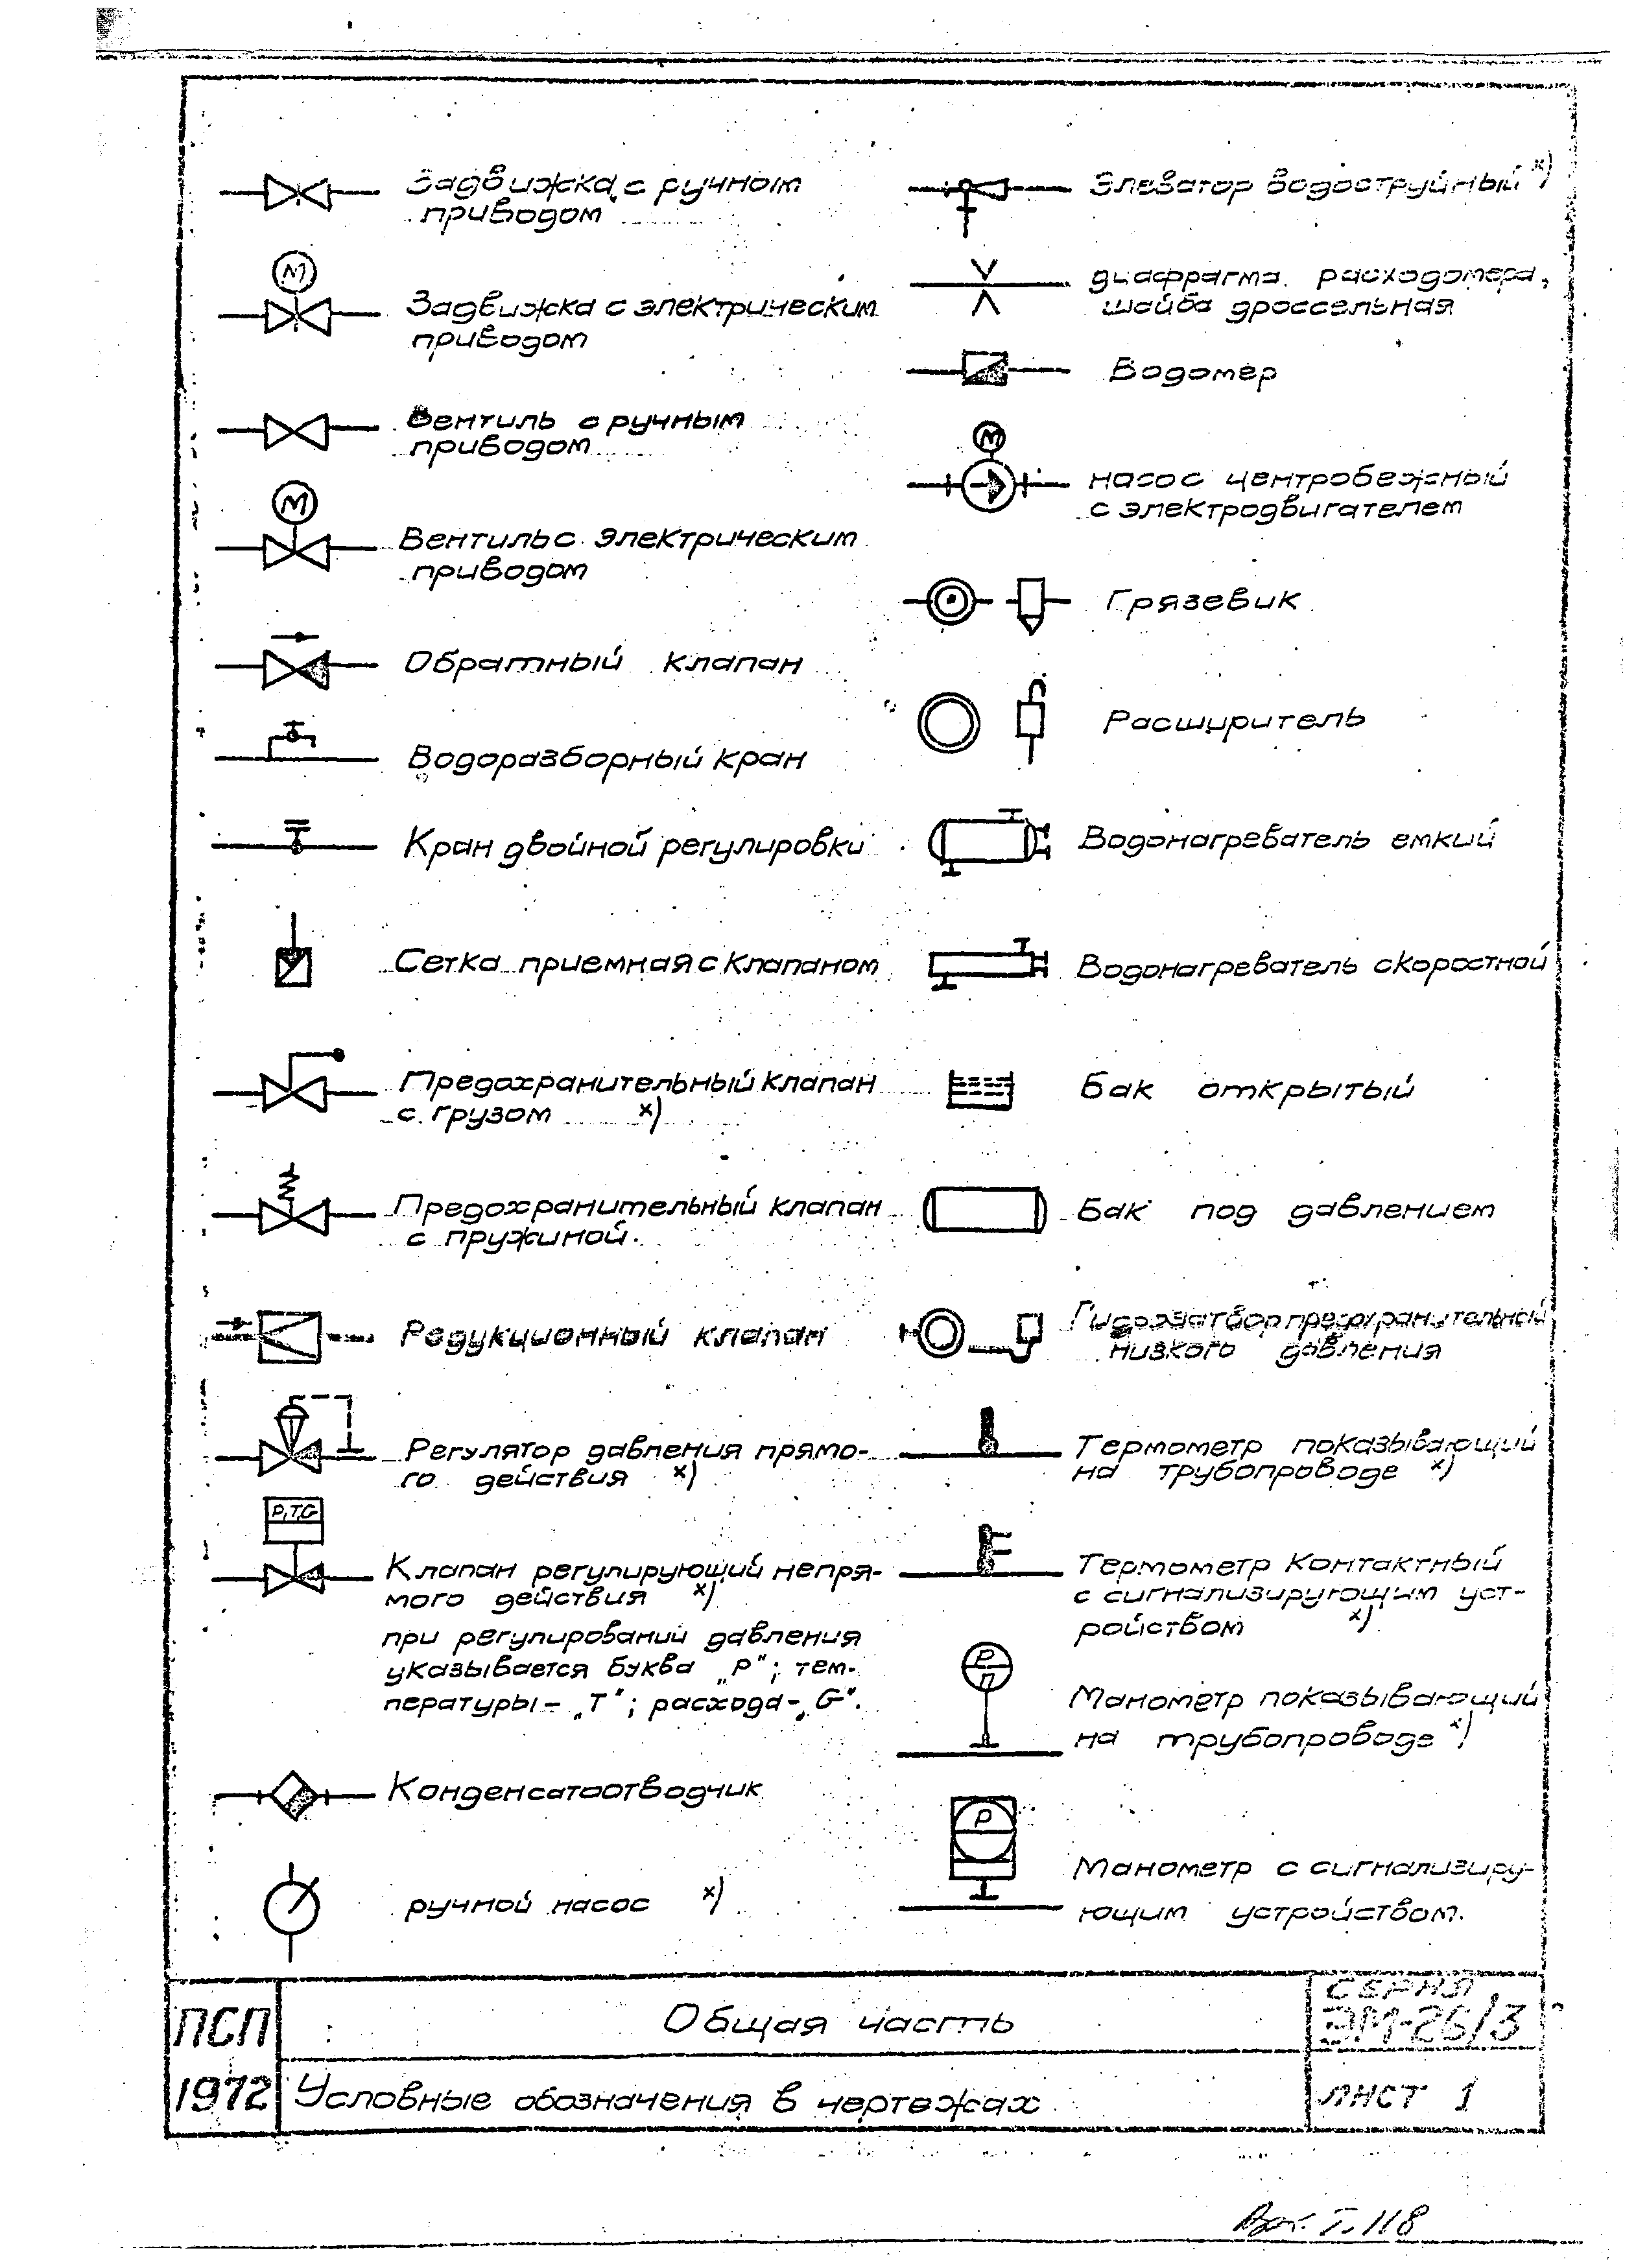 Задвижка с ручным
приводом
М
Задвижка с электрическим
приводом
Вентиль с ручным
приводом
М
Вентиль с электрическим
приводом
Обратный клапан
Водоразборный кран
Кран двойной регулировки
Сетка приемная с клапаном
Предохранительный клапан
с грузом x)
Предохранительный клапан
с пружиной.
Редукционный клапан
Регулятор давления прямо-
го действия x)
P,T,G
Клапан регулирующий непря-
мого действия x)
при регулировании давления
указывается буква „Р"; тем-
пературы - „Т"; расхода - „G".
Конденсатоотводчик
ручной насос x)
Элеватор водоструйный x)
диафрагма расходомера,
шайба дроссельная
Водомер
М
насос центробежный
с электродвигателем
Грязевик
Расширитель
Водонагреватель емкий
Водонагреватель скоростной
Бак открытый
Бак под давлением
Гидрозатвор предохранительный
низкого давления
Термометр показывающий
на трубопроводе x)
Термометр контактный
с сигнализирующим уст-
ройством x)
Р
П
Манометр показывающий
на трубопроводе x)
Р
Манометр с сигнализиру-
ющим устройством.
ПСП
1972
Общая часть
Условные обозначения в чертежах
СЕРИЯ
ЭМ-26/3
ЛИСТ 1
118